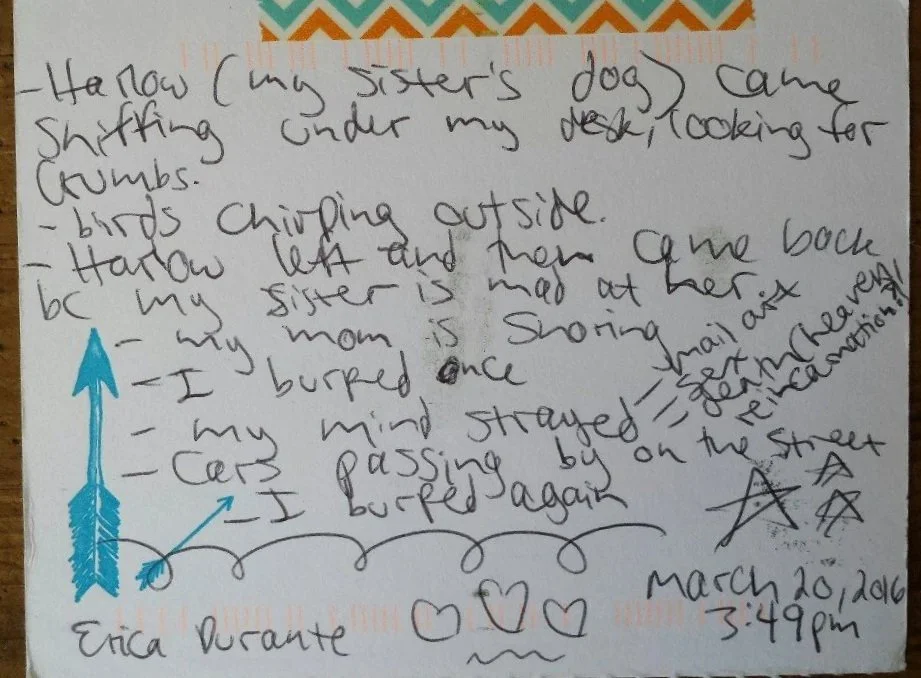 - Harlow (my sister's dog) came
sniffing under my desk, looking for
crumbs.
- birds chirping outside.
- Harlow left and then came back
bc my sister is mad at her.
- my mom is snoring
- I burped once
- my mind strayed
- mail art
- sex
- death (heaven/
reincarnation)
- Cars passing by on the street
- I burped again
Erica Durante
March 20, 2016
3:49pm